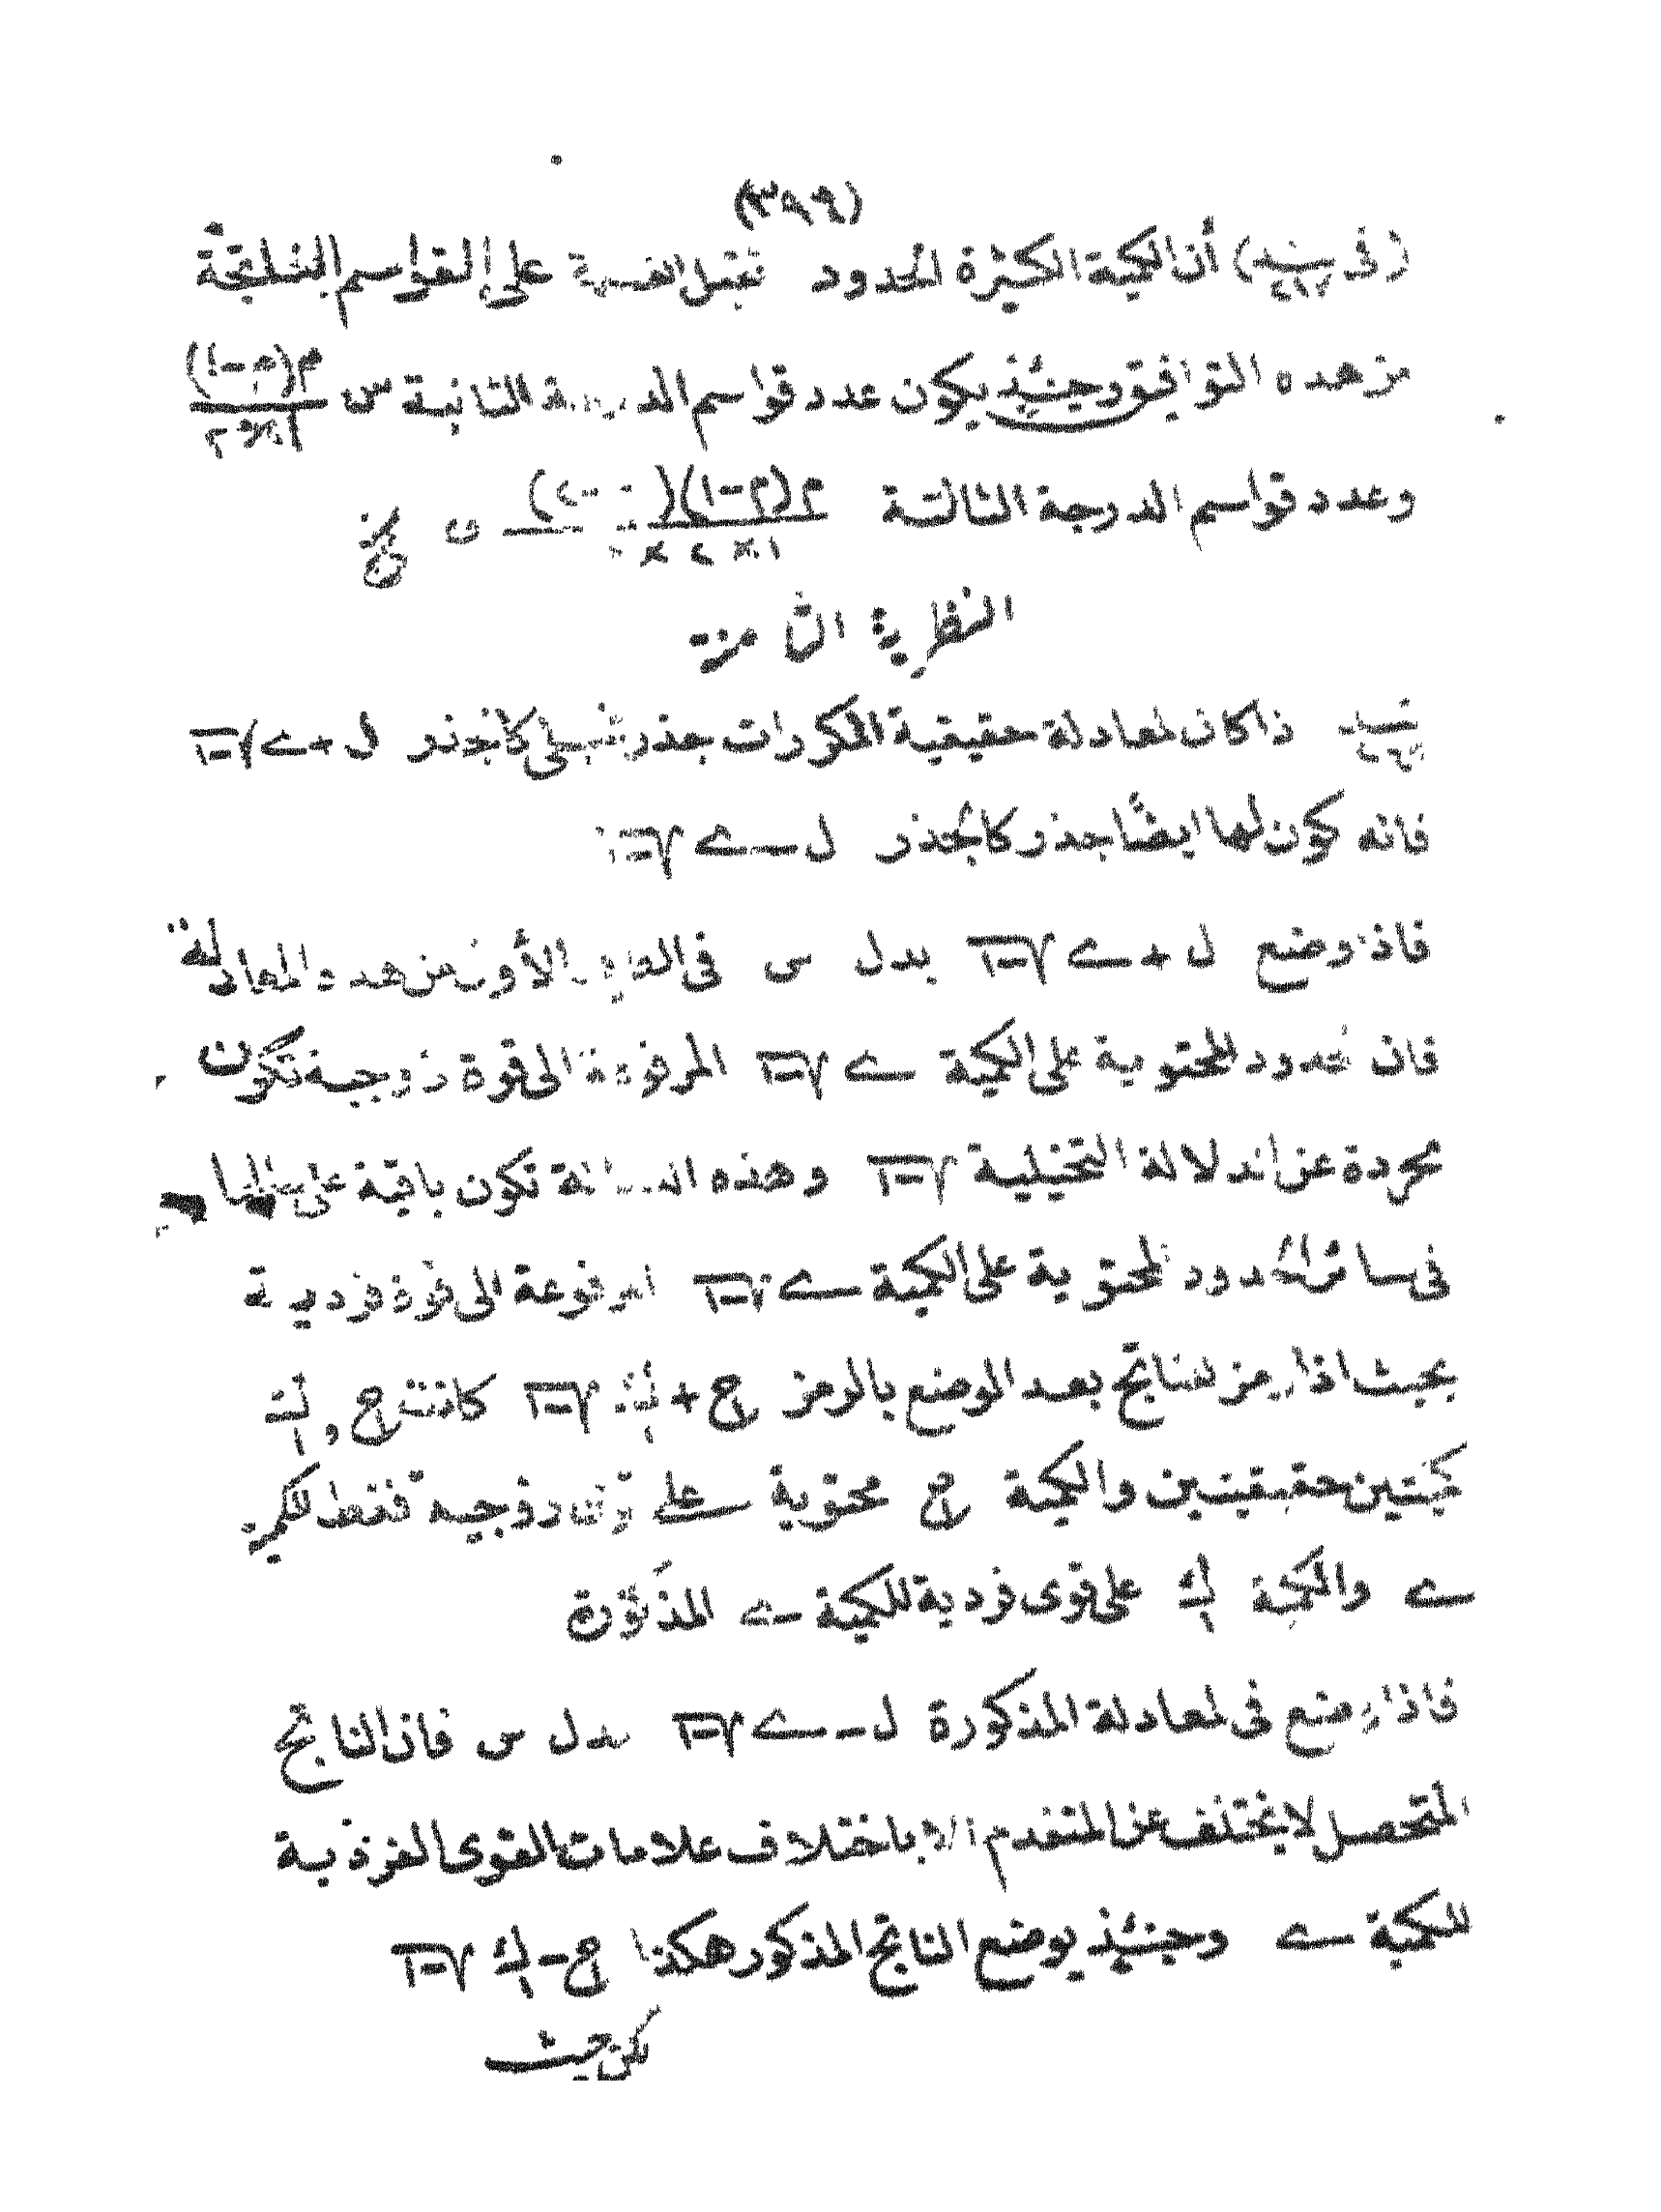 (٣٩٩)
(فى بند ٤١٧) أن الكمية الكثيرة الحدود تقبل القسمة على القواسم الناتجة
من هذه التوافيق وحينئذ يكون عدد قواسم الدرجة الثانية س م(م-١)/١×٢
وعدد قواسم الدرجة الثالثة م(م-١)(م-٢)/١×٢×
النظرية الثامنة
بند اذا كان لمعادلة حقيقية المكررات جذر تخيلى كالجذر ل + ى √-١
فانه يكون لها ايضًا جذر كالجذر ل - ى √-١
فاذا وضع ل + ى √-١ بدل س فى الطرف الأول من هذه المعادلة
فان الحدود المحتوية على الكمية ى √-١ المرفوعة الى قوة زوجية تكون
مجردة عن الدلالة التخيلية √-١ وهذه الدلالة تكون باقية على حالها
فى سائر الحدود المحتوية على الكمية ى √-١ المرفوعة الى قوة فردية
بحيث اذا رمز للناتج بعد الوضع بالرمز ج + ك √-١ كانت ج و ك
كميتين حقيقيتين والكمية ج محتوية على قوى زوجية فقط للكمية
ى والكمية ك على قوى فردية للكمية ى المذكورة
فاذا وضع فى المعادلة المذكورة ل - ى √-١ بدل س فان الناتج
المتحصل لا يختلف عن المتقدم الا باختلاف علامات القوى الفردية
للكمية ى وحينئذ يوضع الناتج المذكور هكذا ج - ك √-١
لكن حيث